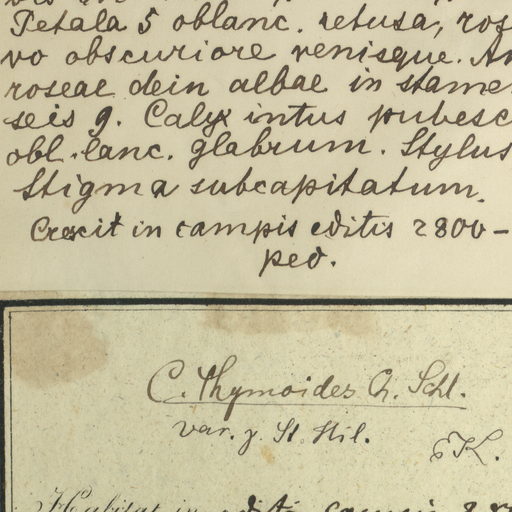 Petala 5 oblanc. retusa, ros
vo obscuriore venisque. An
roseae dein albae in stame
seis 9. Calyx intus pubesc
obl. lanc. glabrum. Stylus
Stigma subcapitatum.
Crescit in campis editis 2800-
ped.
C. thymoides Ch. Schl.
var. γ. St. Hil.
EK.
Habitat in editis campis